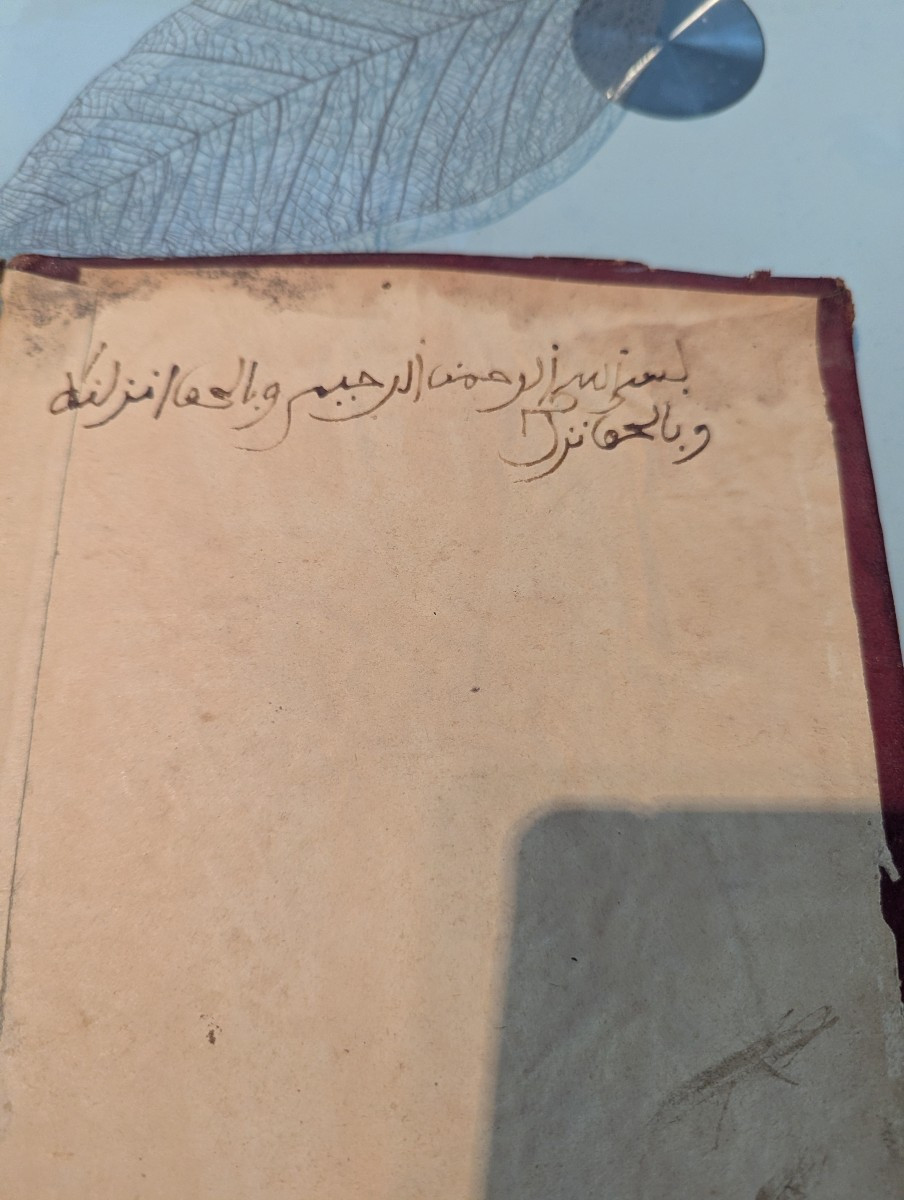 بسم الله الرحمن الرحيم وبالحق انزلنه
وبالحق نزل